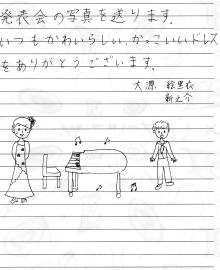 発表会の写真を送ります.
いつもかわいらしい,かっこいいドレス
をありがとうございます.
大淵 絵里衣
新之介